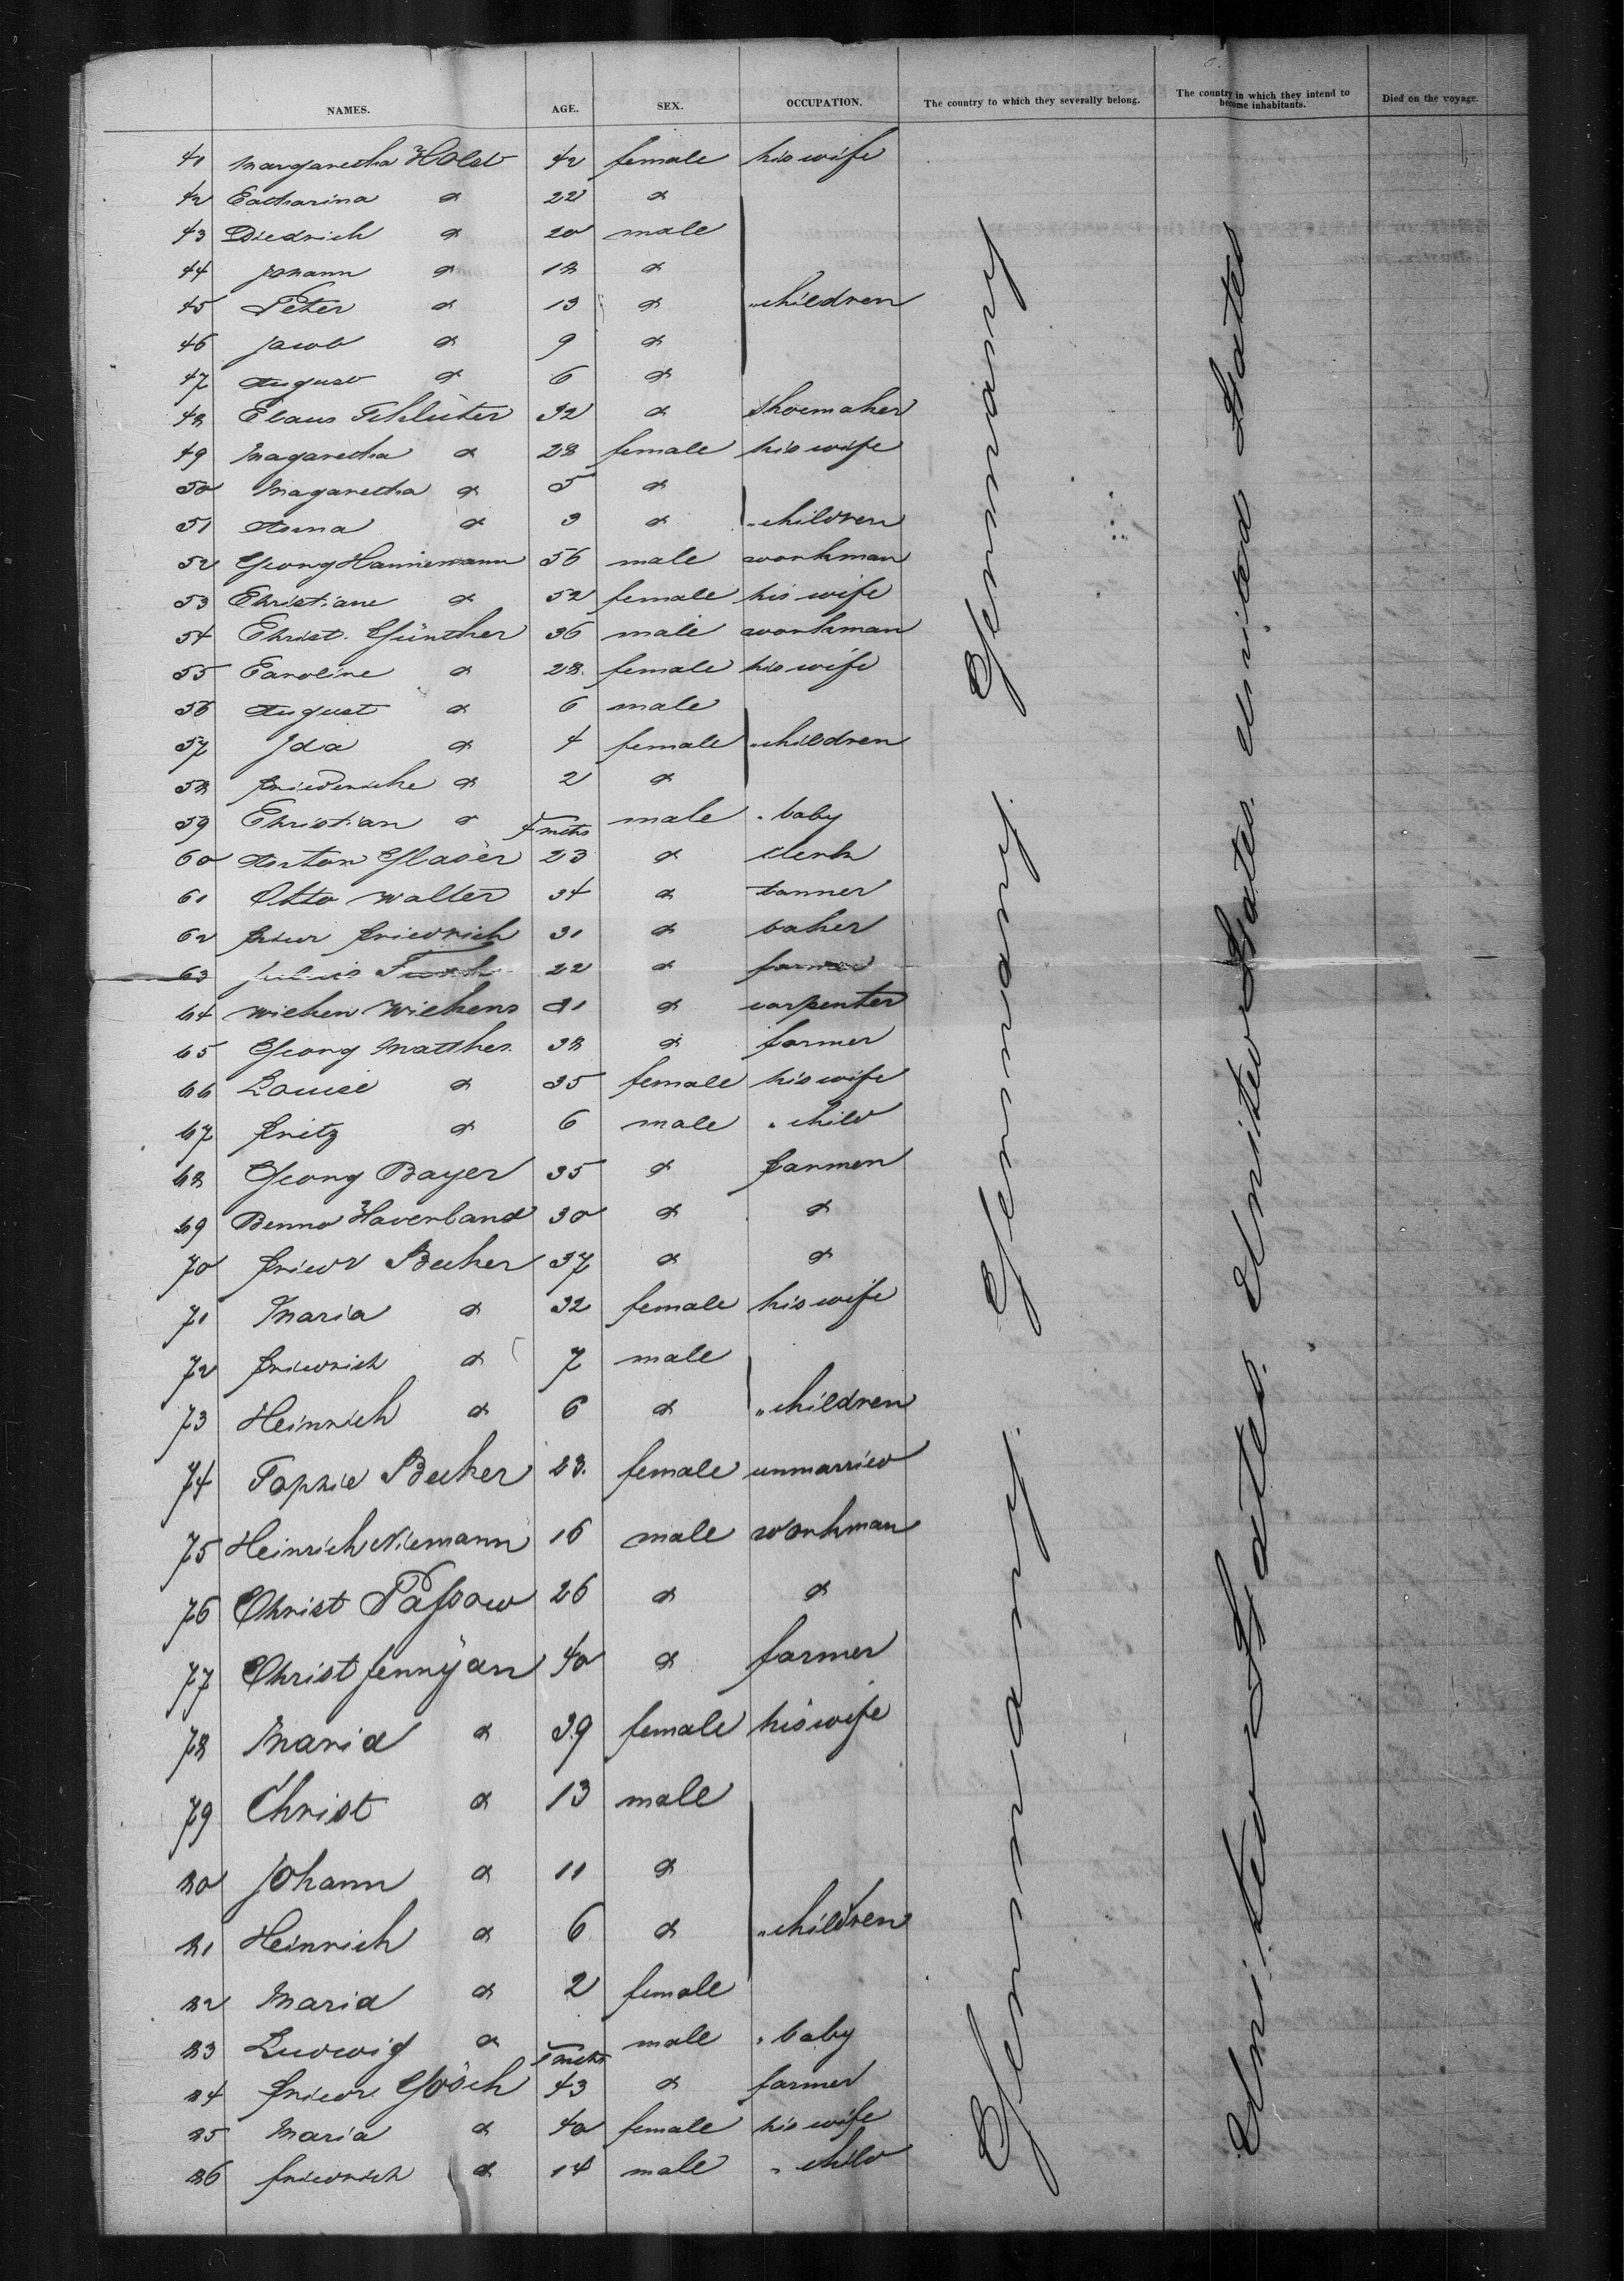 NAMES. AGE. SEX. OCCUPATION. The country to which they severally belong. The country in which they intend to become inhabitants. Died on the voyage.
41 Margaretha Holst 42 female his wife
42 Catharina do 22 do
43 Diedrich do 20 male
44 Johann do 18 do
45 Peter do 13 do " children
46 Jacob do 9 do
47 August do 6 do
48 Claus Schlüter 32 do shoemaker
49 Magaretha do 28 female his wife
50 Magaretha do 5 do
51 Anna do 3 do " children
52 Georg Hannemann 56 male workman
53 Christiane do 52 female his wife
54 Christ. Günther 36 male workman
55 Caroline do 28 female his wife
56 August do 6 male
57 Ida do 4 female " children
58 Friedericke do 2 do
59 Christian do mths male " baby
60 Anton Glaser 23 do clerk
61 Otto Walter 34 do tanner
62 Friedr Friedrich 31 do baker
63 Julius 22 do farmer
64 Wiehen Wiehens 31 do carpenter
65 Georg Matthes 38 do farmer
66 Louise do 35 female his wife
67 Fritz do 6 male " child
68 Georg Bayer 35 do farmer
69 Benno Haverland 30 do do
70 Friedr Becker 37 do do
71 Maria do 32 female his wife
72 Friedrich do 7 male
73 Heinrich do 6 do " children
74 Sophie Becker 23. female unmarried
75 Heinrich Niemann 16 male workman
76 Christ Passow 26 do do
77 Christ Jennyjan 40 do farmer
78 Maria do 39 female his wife
79 Christ do 13 male
80 Johann do 11 do
81 Heinrich do 6 do " children
82 Maria do 2 female
83 Ludwig do mths male " baby
84 Friedr. Gösch 43 do farmer
85 Maria do 40 female his wife
86 Friedrich do 14 male " child
Germany Germany. Germany.
United States. United States. United States